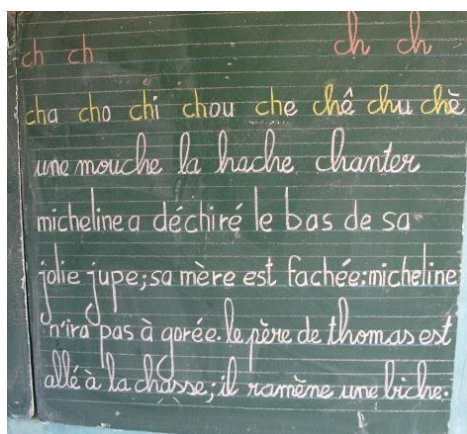 ch ch ch ch
cha cho chi chou che chê chu chè
une mouche la hache chanter
micheline a déchiré le bas de sa
jolie jupe; sa mère est fachée: micheline
n'ira pas à gorée. le père de thomas est
allé à la chasse; il ramène une biche.